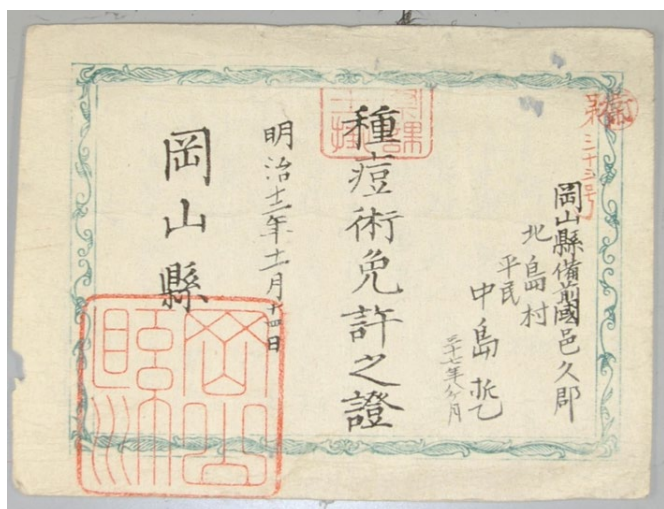 第三十三号
岡山縣備前國邑久郡
北島村
平民
中島乴
三十七年八ヶ月
種痘術免許之證
明治十二年十一月十四日
岡山縣